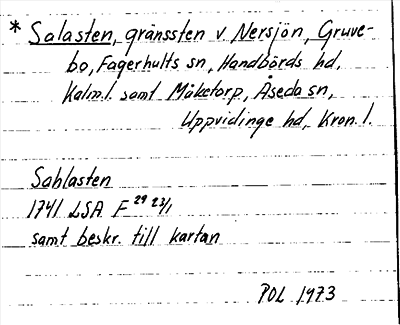 * Salasten, gränssten v. Nersjön, Gruve-
bo, Fagerhults sn, Handbörds hd,
Kalm.l. samt Måketorp, Åseda sn,
Uppvidinge hd, Kron.l.
Sahlasten
1741 LSA F 29 23/1
samt beskr. till kartan
POL 1973